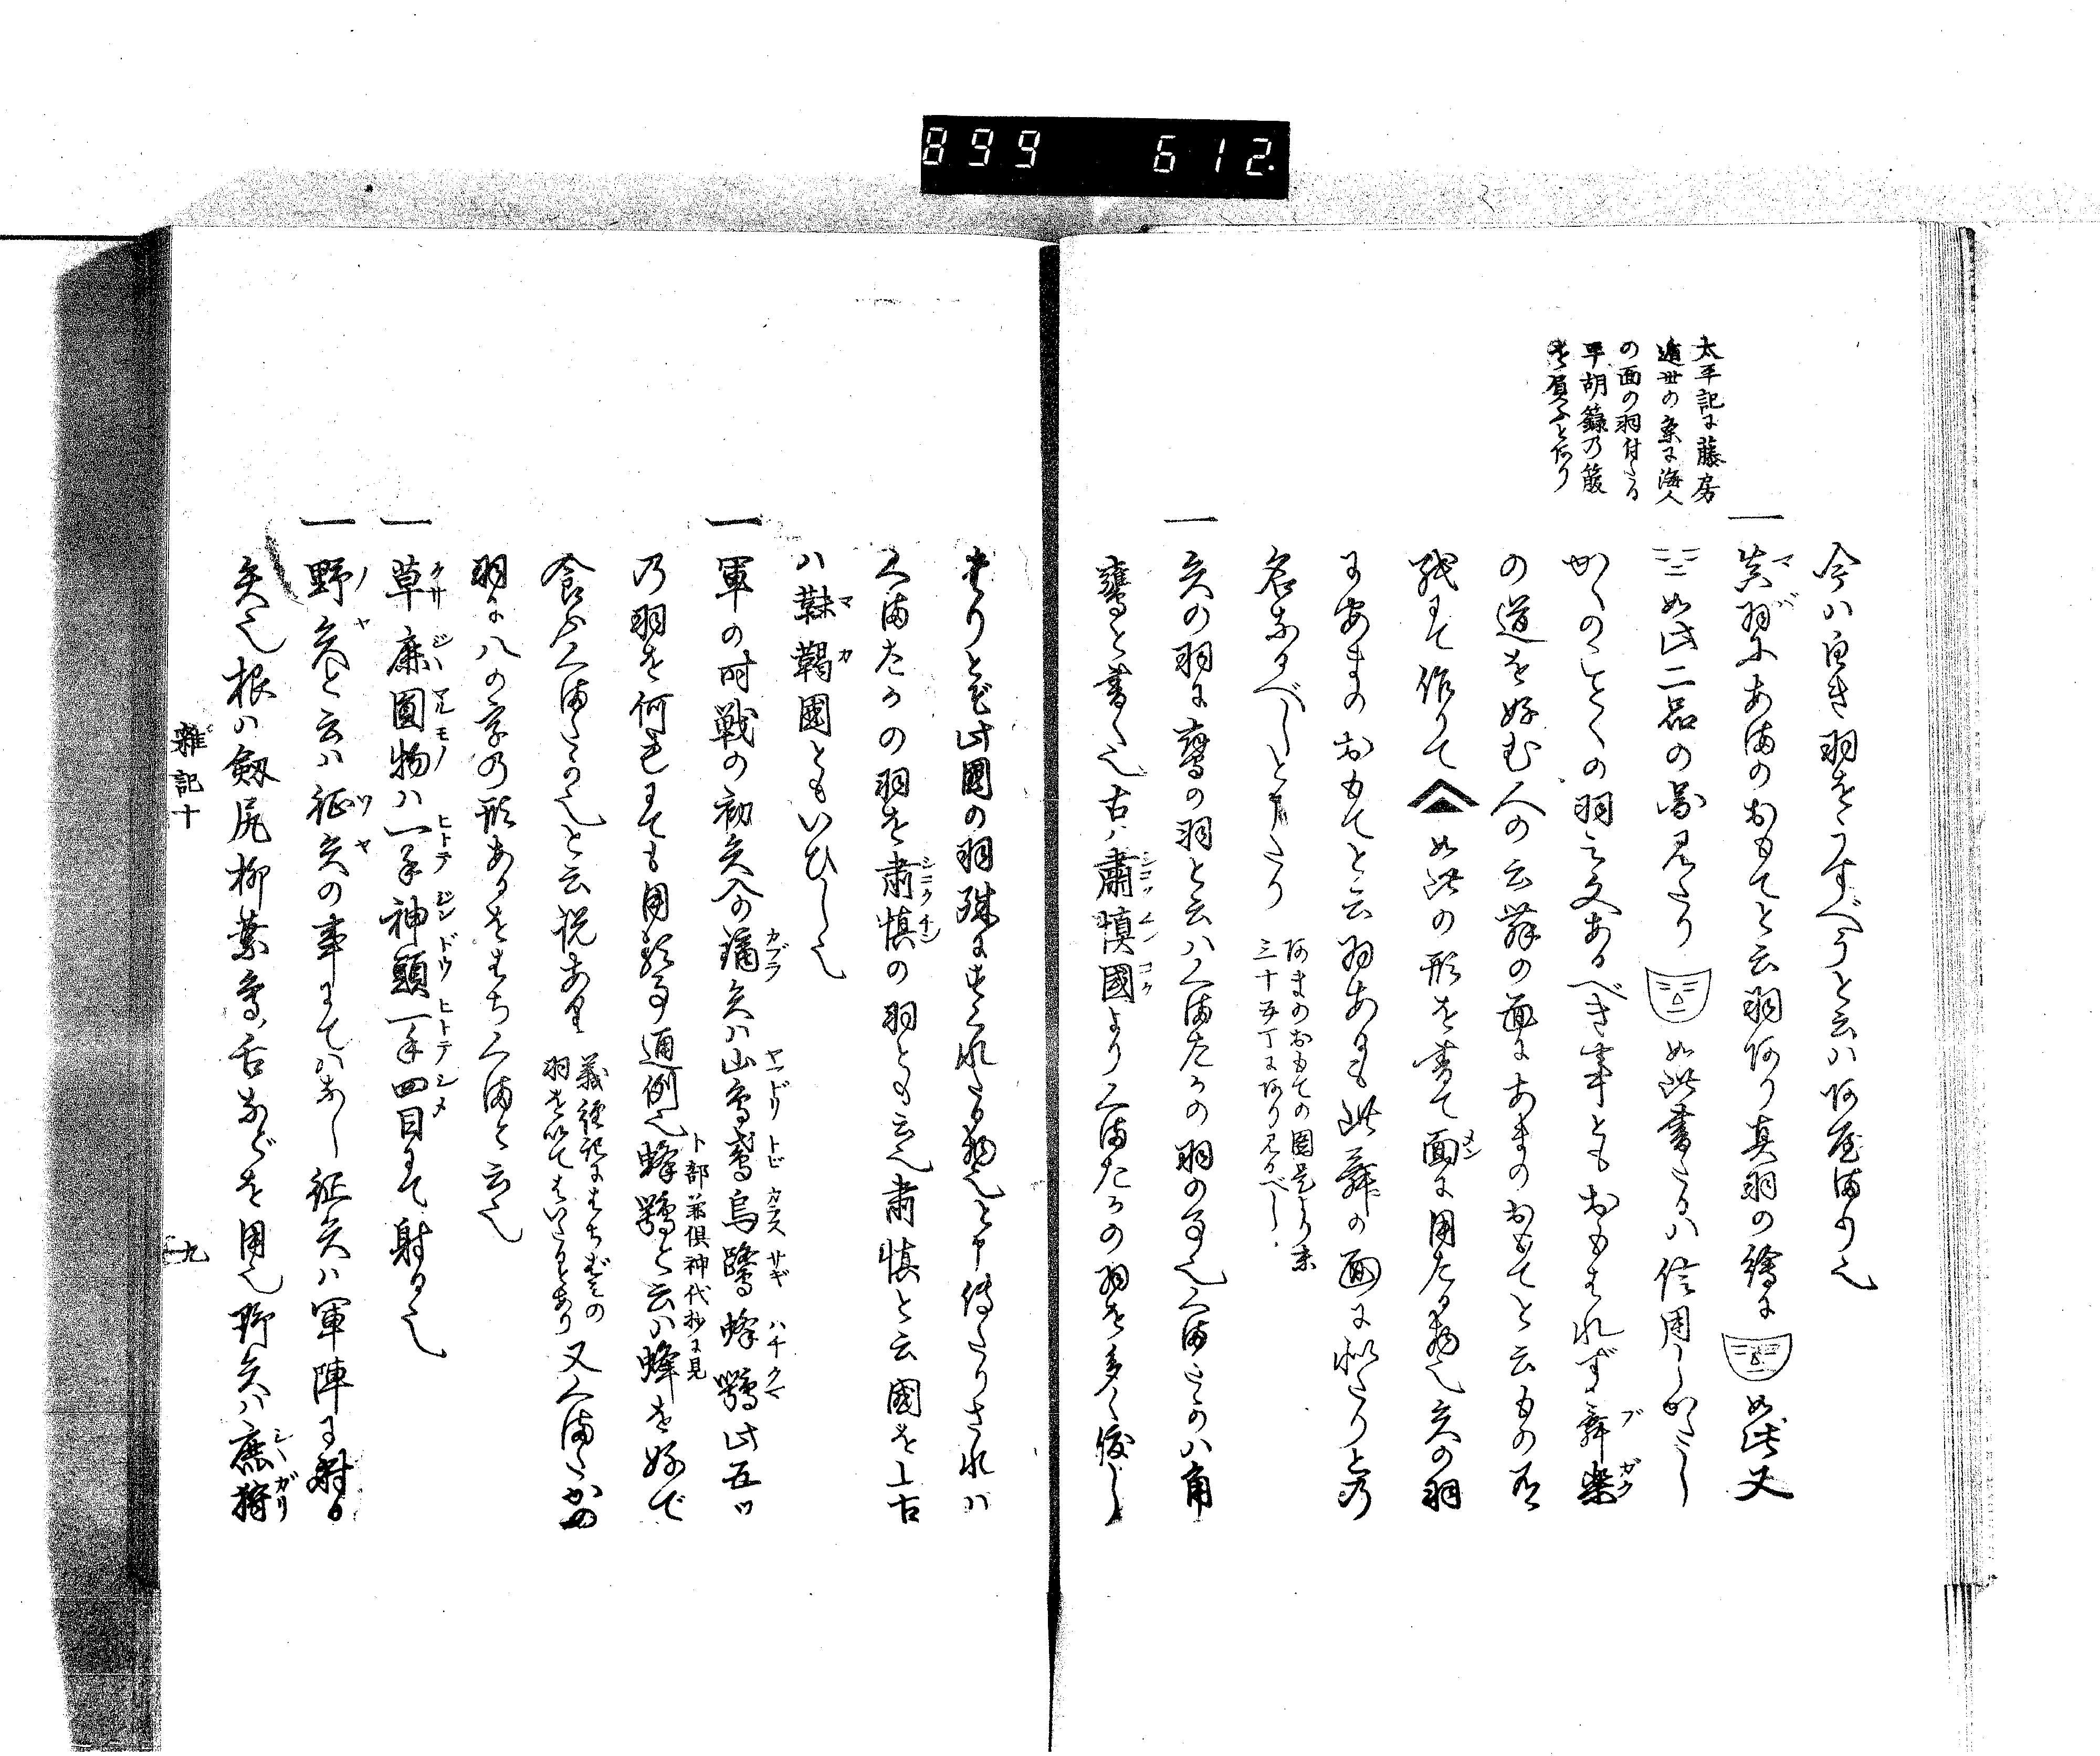 899 612.
太平記に藤房
遁世の条に海人
の面の羽付たる
平胡籙の箙
を負ふと有り
今ハ白き羽をうすべうと云ハ阿屋まり也
一 真羽にあまのおもてと云羽阿り真羽の繪に 如此又
如此二品の図見たり 如此書たるハ信用しがたし
かくのことくの羽之文あるべき事ともおもはれず舞楽
の道を好む人の云舞の面にあまのおもてと云もの有
紙にて作りて 如此の形を書て面に用たる物也矢の羽
にあまのおもてと云羽あるも此舞の面に似たりと乃
名なるべしと申たり 阿まのおもての圖是より末
三十五丁に阿り見るべし
一 矢の羽に鷲の羽と云ハくまたかの羽の事也くまたかハ角
鷹と書く也古ハ肅慎國よりくまたかの羽を多く渡し
きりとぞ此國の羽殊にすくれたる物也と申傳たりされハ
くまたかの羽を肅慎の羽とも云也肅慎と云國を上古
ハ靺鞨國ともいひし也
一 軍の時戦の初矢合の鏑矢ハ山鳥鳶烏鷺蜂鷹此五ツ
乃羽を何毛にても用る事通例也蜂鷹と云ハ蜂を好で
卜部兼倶神代抄に見
食ふくまたか也と云説あり 義経記にはちばミの
羽を以てはいたるとあり 又くまたかの
羽に八の字の形あるをはちくまと云也
一 草鹿圓物ハ一手神頭一手四目にて射る也
一 野矢と云ハ征矢の事にてハなし征矢ハ軍陣に射る
矢也根ハ剱尻柳葉鳥ノ舌などを用也野矢ハ鹿狩
雜記十
九